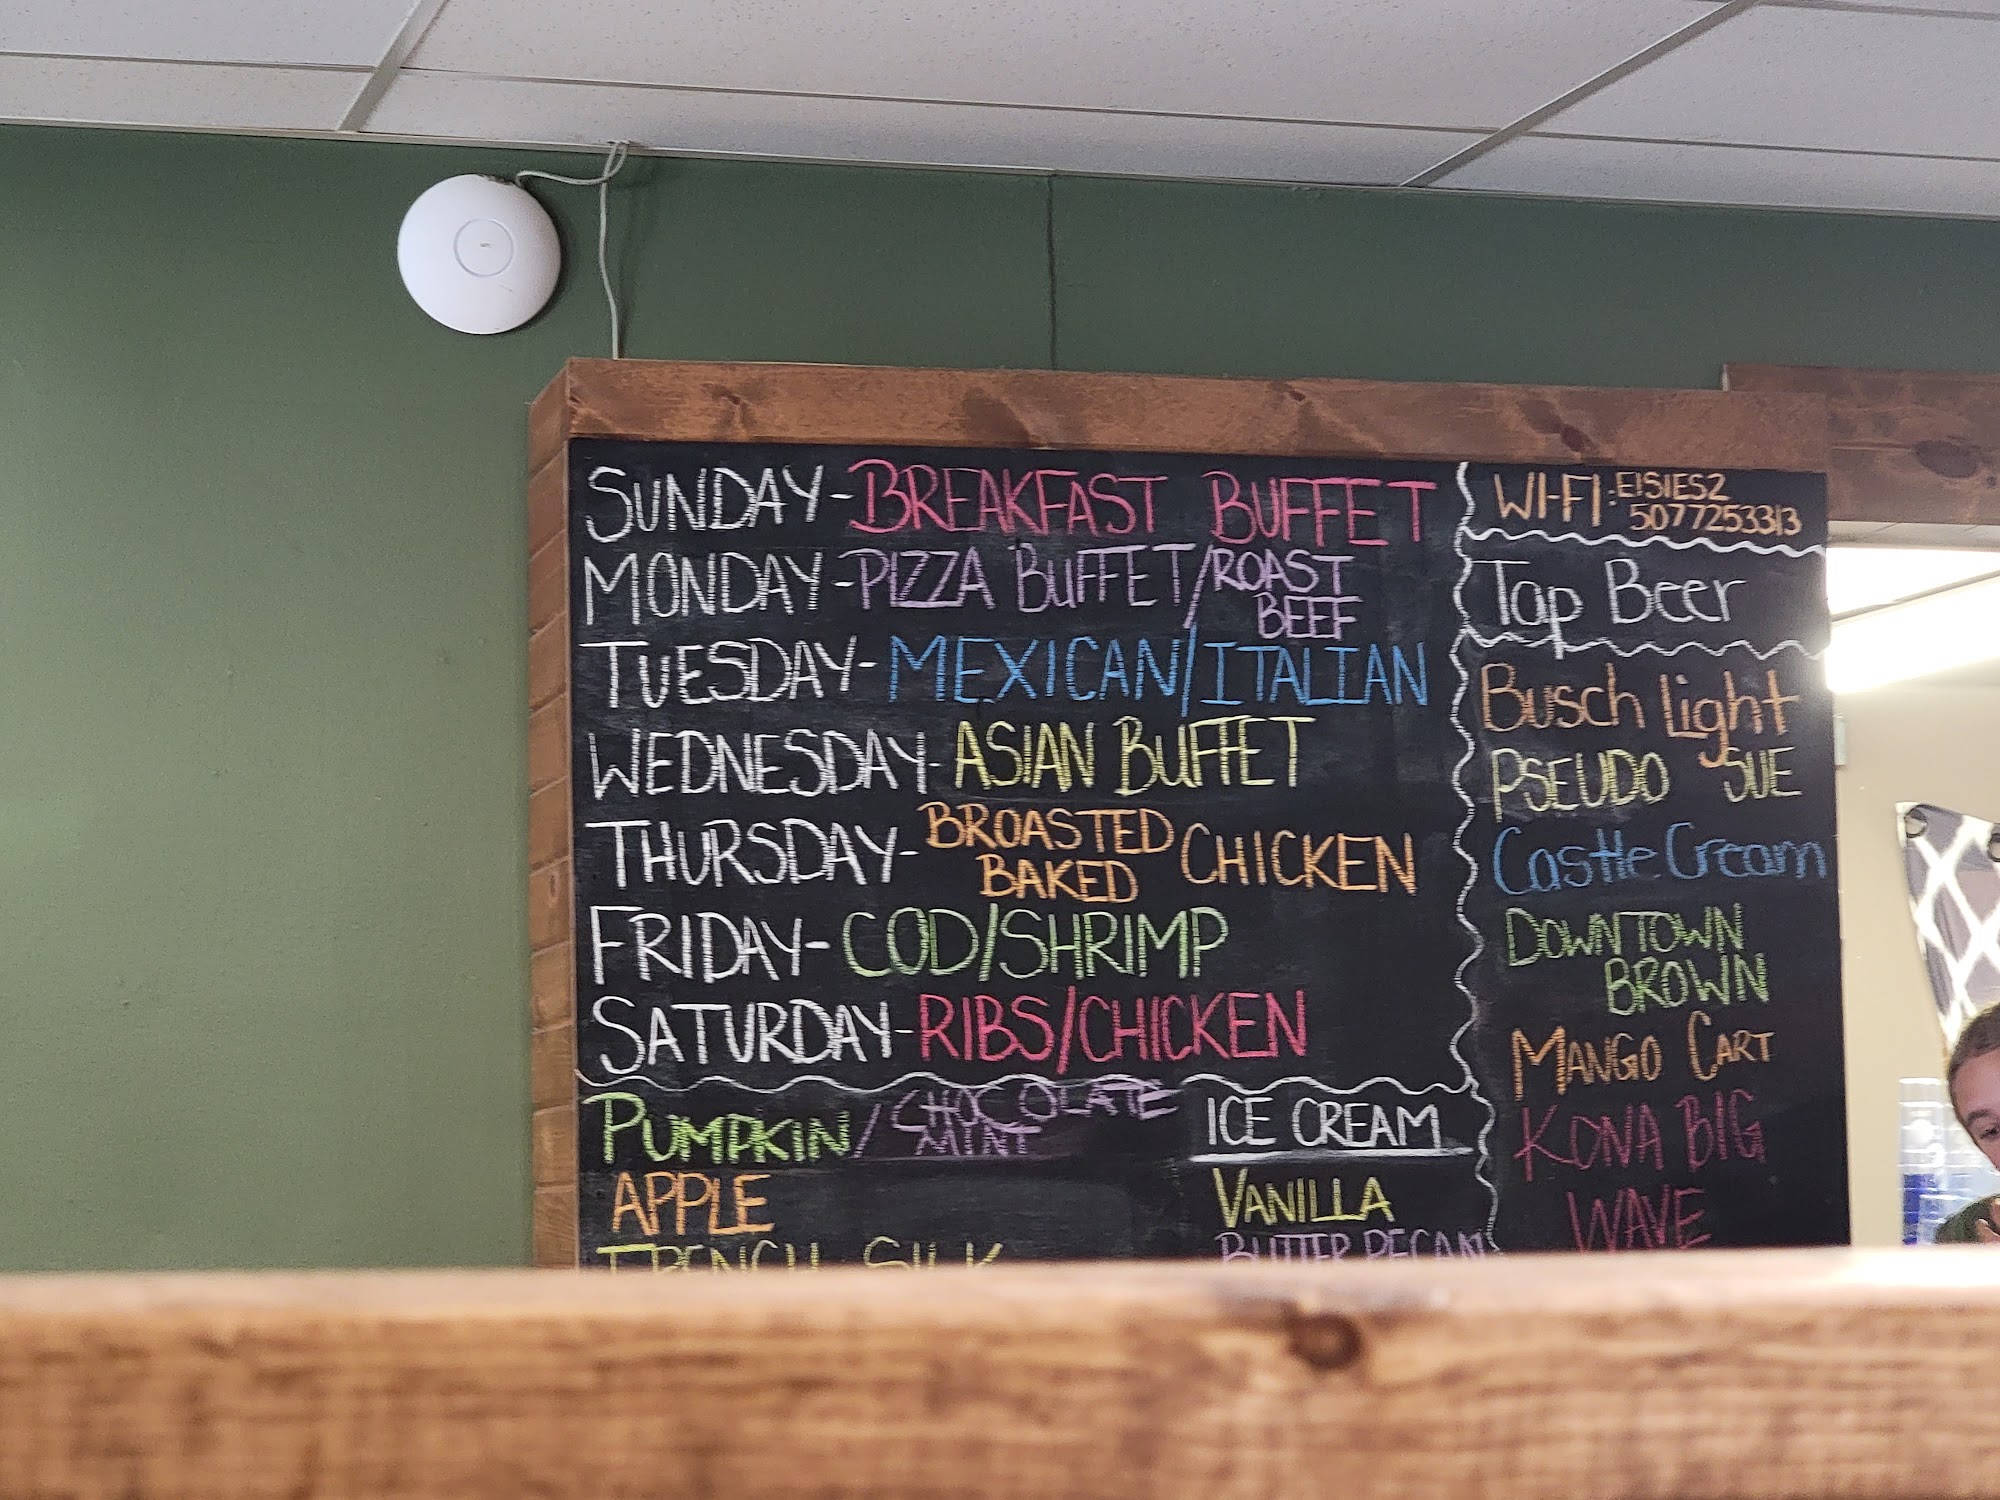 SUNDAY-BREAKFAST BUFFET
MONDAY-PIZZA BUFFET/ROAST
BEEF
TUESDAY-MEXICAN/ITALIAN
WEDNESDAY-ASIAN BUFFET
THURSDAY-BROASTED
BAKED CHICKEN
FRIDAY-COD/SHRIMP
SATURDAY-RIBS/CHICKEN
PUMPKIN/CHOCOLATE
MINT
APPLE
FRENCH SILK
ICE CREAM
VANILLA
BUTTER PECAN
WI-FI: EISIES2
5077253313
Tap Beer
Busch Light
PSEUDO SUE
Castle Cream
DOWNTOWN
BROWN
MANGO CART
KONA BIG
WAVE